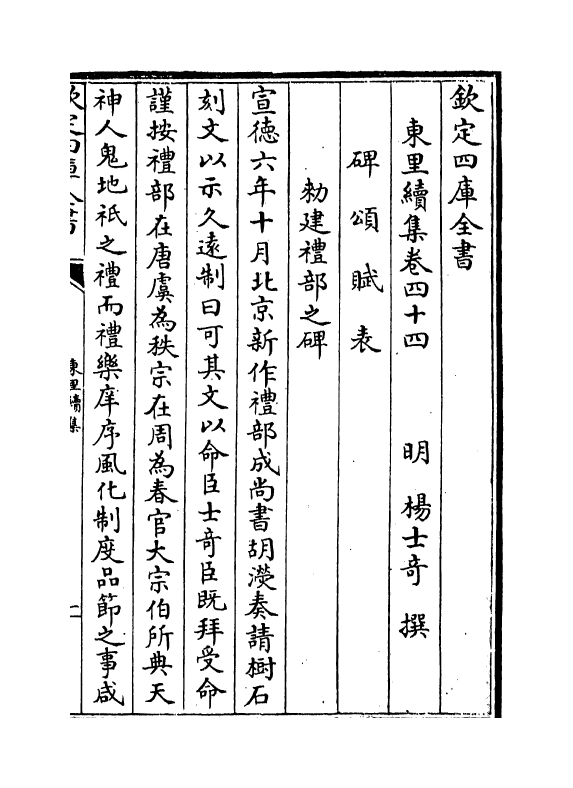 欽定四庫全書
東里續集卷四十四 明 楊士奇 撰
碑頌賦表
勅建禮部之碑
宣徳六年十月北京新作禮部成尚書胡濙奏請樹石
刻文以示久遠制曰可其文以命臣士奇臣既拜受命
謹按禮部在唐虞為秩宗在周為春官大宗伯所典天
神人鬼地祇之禮而禮樂庠序風化制度品節之事咸
欽定四庫全書
東里續集